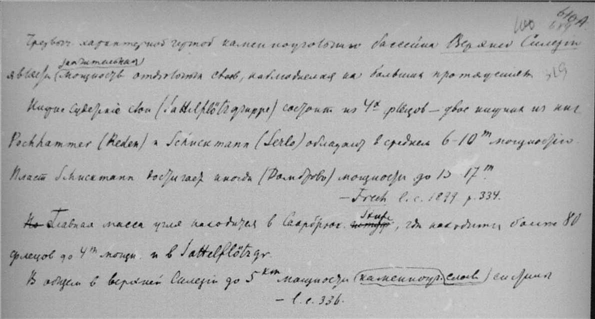 610A
100 619
Чрезвыч. характерной чертой каменноугольного бассейна Верхней Силезии
является значительная мощность отдельных слоев, наблюдаемая на больших протяжениях 319
Нижние Судетские слои (Sattelflötzgruppe) состоят из 4х флецов – двое нижних из них
Pochhammer (Reden) и Schuckmann (Serlo) обладают в среднем 6–10 m мощностью.
Пласт Schuckmann достигает иногда (Домброво) мощности до 15–17 m.
– Frech l. c. 1899. p. 334.
Главная масса угля находится в Саарбрюк. Stufe, где находится более 80
флецов до 4 m мощн. и в Sattelflötzgr.
В общем в верхней Силезии до 5 km мощности (каменноуг. слоев) свита
– l. c. 336.